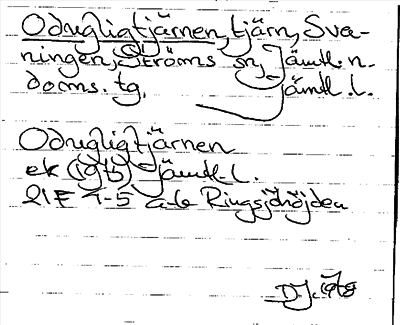 Odugligtjärnen, tjärn, Sva-
ningen, Ströms sn, Jämtl. n.
doms. tg, Jämtl. l.
Odugligtjärnen
ek (1975) Jämtl. l.
21E 4-5 a-b Ringsjöhöjden
D.J. 1978